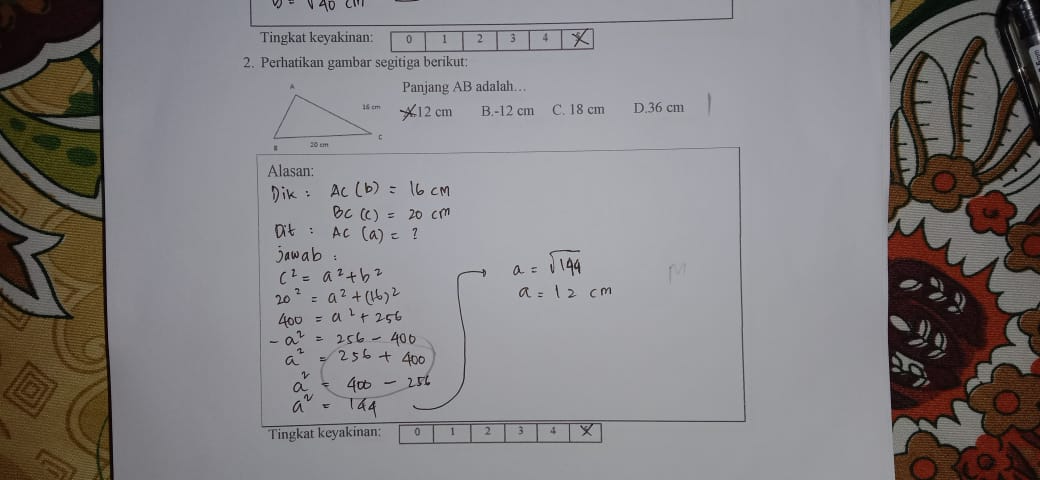 b = √40 cm
Tingkat keyakinan: 0 1 2 3 4
2. Perhatikan gambar segitiga berikut:
A
16 cm
C
B
20 cm
Panjang AB adalah…
12 cm B.-12 cm C. 18 cm D.36 cm
Alasan:
Dik : AC (b) = 16 cm
BC (c) = 20 cm
Dit : AC (a) = ?
jawab :
c² = a² + b²
20² = a² + (16)²
400 = a² + 256
- a² = 256 - 400
a² = 256 + 400
a² = 400 - 256
a² = 144
a = √144
a = 12 cm
M
Tingkat keyakinan: 0 1 2 3 4